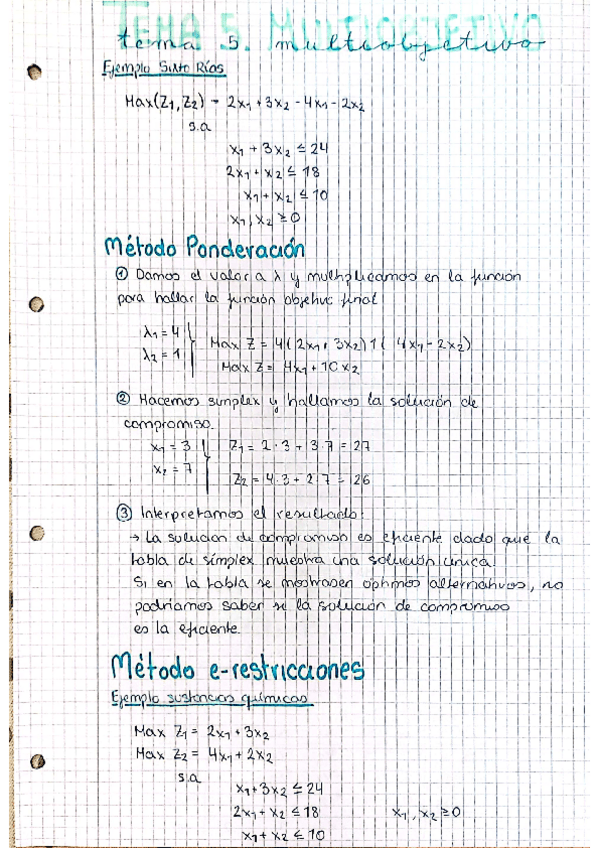 TEMA 5. MULTIOBJETIVO
tema 5 multiobjetivo
Ejemplo Sixto Ríos
Max(Z1, Z2) = 2x1 + 3x2 - 4x1 - 2x2
s.a
x1 + 3x2 ≤ 24
2x1 + x2 ≤ 18
x1 + x2 ≤ 10
x1, x2 ≥ 0
Método Ponderación
① Damos el valor a λ y multiplicamos en la función
para hallar la función objetivo final
λ1 = 4
λ2 = 1
Max Z = 4(2x1, 3x2) 1( 4x1 - 2x2)
Max Z = 4x1 + 10x2
② Hacemos simplex y hallamos la solución de
compromiso.
x1 = 3
x2 = 7
Z1 = 2·3 + 3·7 = 27
Z2 = 4·3 + 2·7 = 26
③ Interpretamos el resultado:
→ La solución de compromiso es eficiente dado que la
tabla de símplex muestra una solución única.
Si en la tabla se mostrasen óptimos alternativos, no
podríamos saber si la solución de compromiso
es la eficiente.
Método e-restricciones
Ejemplo sustancias químicas
Max Z1 = 2x1 + 3x2
Max Z2 = 4x1 + 2x2
s.a
x1 + 3x2 ≤ 24
2x1 + x2 ≤ 18 x1, x2 ≥ 0
x1 + x2 ≤ 10